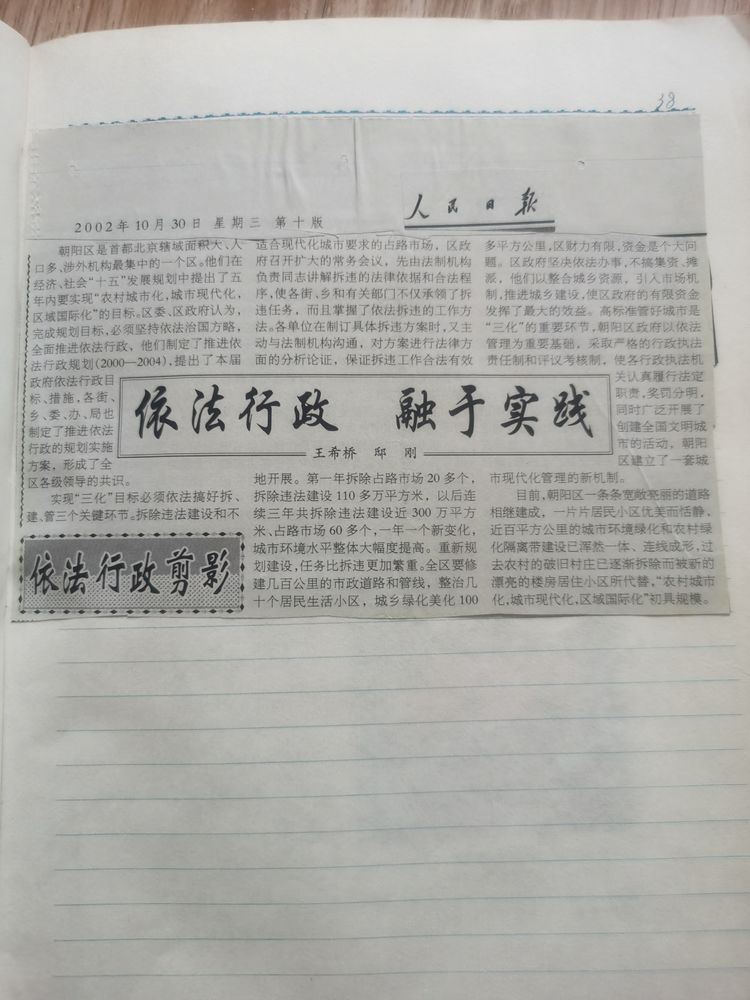 38
人民日报
2002年10月30日 星期三 第十版
依法行政 融于实践
王希桥 邸 刚
朝阳区是首都北京辖域面积大、人
口多、涉外机构最集中的一个区。他们在
经济、社会“十五”发展规划中提出了五
年内要实现“农村城市化,城市现代化,
区域国际化”的目标。区委、区政府认为,
完成规划目标,必须坚持依法治国方略,
全面推进依法行政,他们制定了推进依
法行政规划(2000—2004),提出了本届
政府依法行政目
标、措施,各街、
乡、委、办、局也
制定了推进依法
行政的规划实施
方案,形成了全
区各级领导的共识。
实现“三化”目标必须依法搞好拆、
建、管三个关键环节。拆除违法建设和不
适合现代化城市要求的占路市场,区政
府召开扩大的常务会议,先由法制机构
负责同志讲解拆违的法律依据和合法程
序,使各街、乡和有关部门不仅承领了拆
违任务,而且掌握了依法拆违的工作方
法。各单位在制订具体拆违方案时,又主
动与法制机构沟通,对方案进行法律方
面的分析论证,保证拆违工作合法有效
地开展。第一年拆除占路市场20多个,
拆除违法建设110多万平方米,以后连
续三年共拆除违法建设近300万平方
米、占路市场60多个,一年一个新变化,
城市环境水平整体大幅度提高。重新规
划建设,任务比拆违更加繁重。全区要修
建几百公里的市政道路和管线,整治几
十个居民生活小区,城乡绿化美化100
多平方公里,区财力有限,资金是个大问
题。区政府坚决依法办事,不搞集资、摊
派,他们以整合城乡资源,引入市场机
制,推进城乡建设,使区政府的有限资金
发挥了最大的效益。高标准管好城市是
“三化”的重要环节,朝阳区政府以依法
管理为重要基础,采取严格的行政执法
责任制和评议考核制,使各行政执法机
关认真履行法定
职责,奖罚分明,
同时广泛开展了
创建全国文明城
市的活动,朝阳
区建立了一套城
市现代化管理的新机制。
目前,朝阳区一条条宽敞亮丽的道路
相继建成,一片片居民小区优美而恬静,
近百平方公里的城市环境绿化和农村绿
化隔离带建设已浑然一体、连线成形,过
去农村的破旧村庄已逐渐拆除而被新的
漂亮的楼房居住小区所代替,“农村城市
化,城市现代化,区域国际化”初具规模。
依法行政剪影